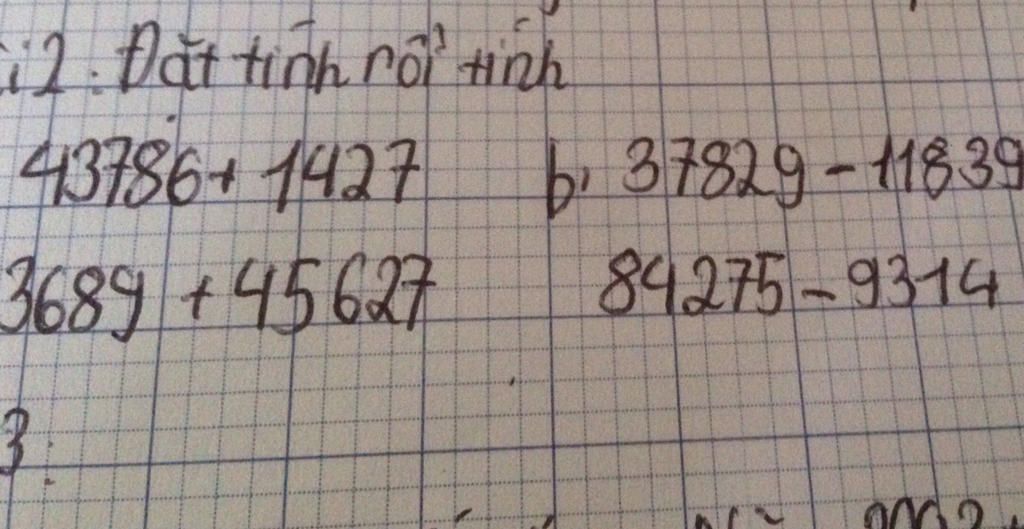 i 2: Đặt tính rồi tính
43786 + 1427 b, 37829 - 11839
3689 + 45627 84275 - 9314
3: